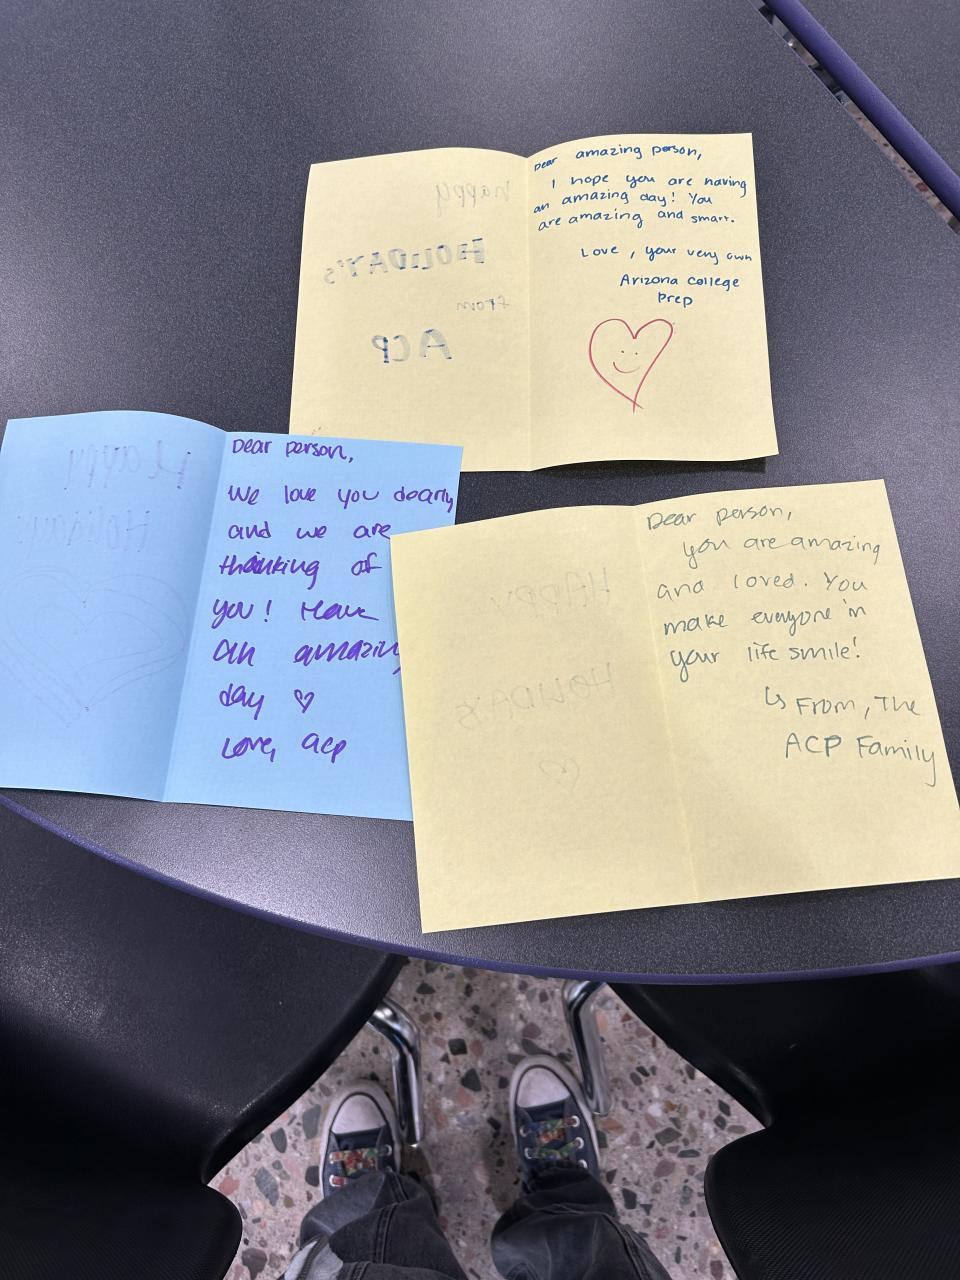 Happy
HOLIDAY's
from
ACP
Dear amazing person,
I hope you are having
an amazing day! You
are amazing and smart.
Love, your very own
Arizona College
Prep
Happy
Holidays
Dear person,
We love you dearly
and we are
thinking of
you! Have
an amazing
day ♡
Love, acp
HAPPY
HOLIDAYS
Dear person,
you are amazing
and loved. You
make everyone in
your life smile!
↳ From, The
ACP Family